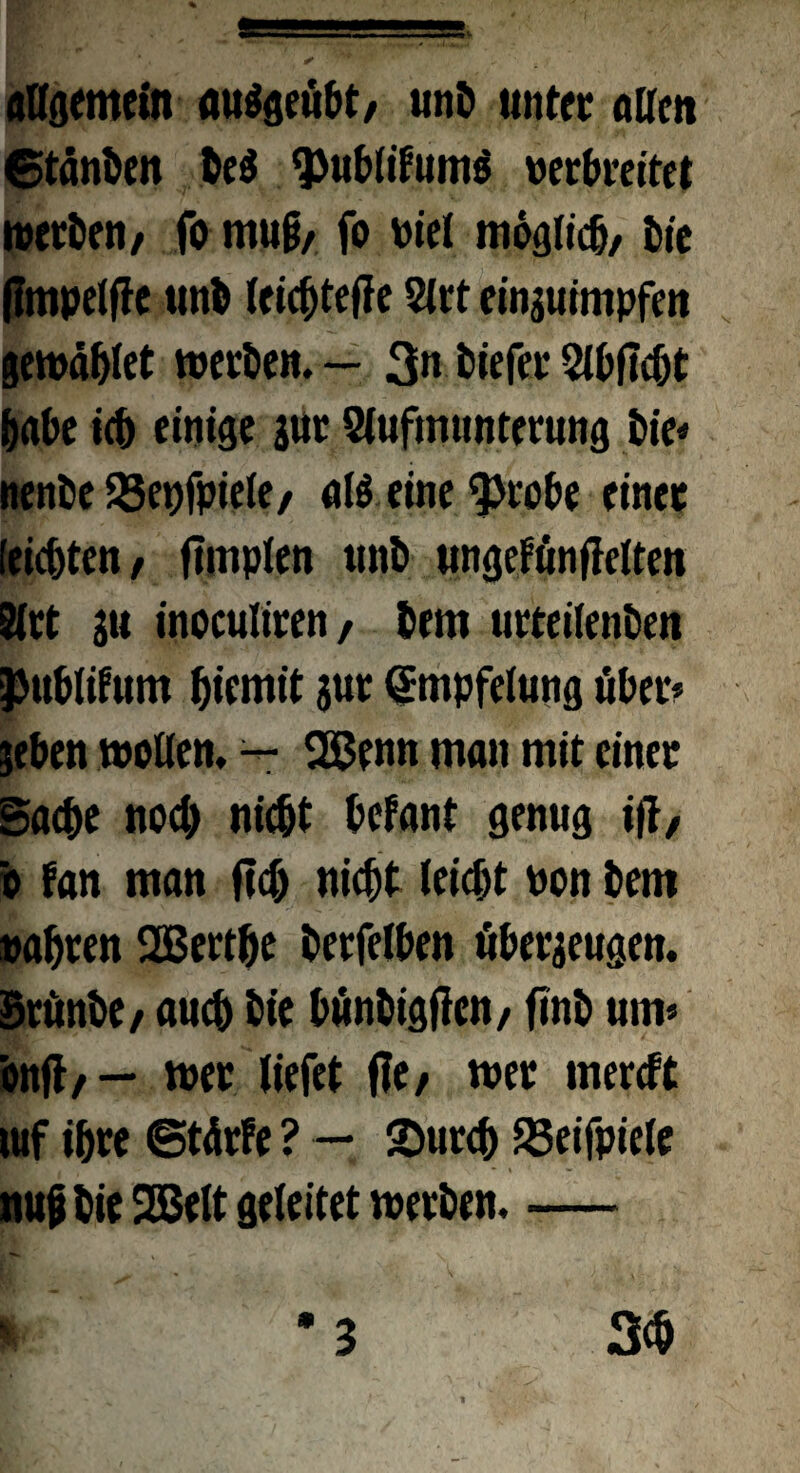 allgemein ausgeübt, und unter allen
Ständen des Publikums verbreitet
werden, so muß, so viel möglich, die
simpelste und leichteste Art einzuimpfen
gewählet werden. — In dieser Absicht
habe ich einige zur Aufmunterung die-
nende Beyspiele, als eine Probe einer
leichten, simplen und ungekünstelten
Art zu inoculiren, dem urteilenden
Publikum hiemit zur Empfelung über-
geben wollen. — Wenn man mit einer
Sache noch nicht bekant genug ist,
o kan man sich nicht leicht von dem
wahren Werthe derselben überzeugen.
Gründe, auch die bündigsten, sind um-
onst, — wer lieset sie, wer merckt
auf ihre Stärke? — Durch Beispiele
muß die Welt geleitet werden. —
* 3 Ich